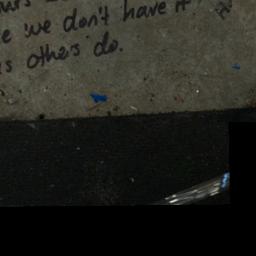 we don't have it
as others do.